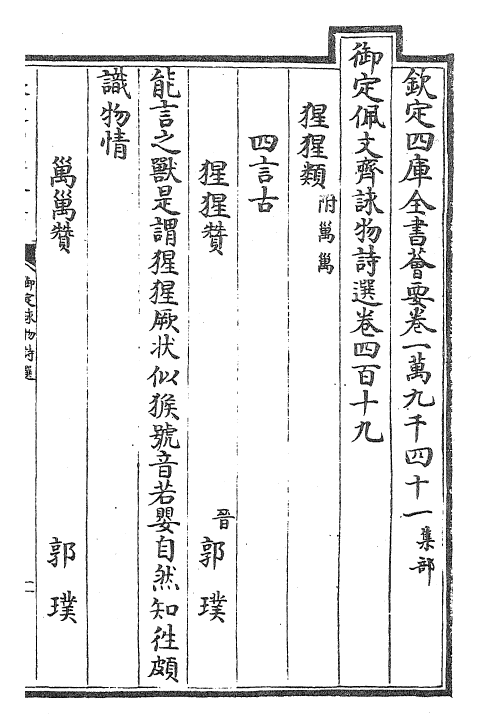 欽定四庫全書薈要卷一萬九千四十一 集部
御定佩文齊詠物詩選卷四百十九
猩猩類 附𤟤𤟤
四言古
猩猩贊 晉 郭璞
能言之獸是謂猩猩厥状似猴號音若嬰自然知徃頗
識物情
贊 郭璞
御定詠物詩選